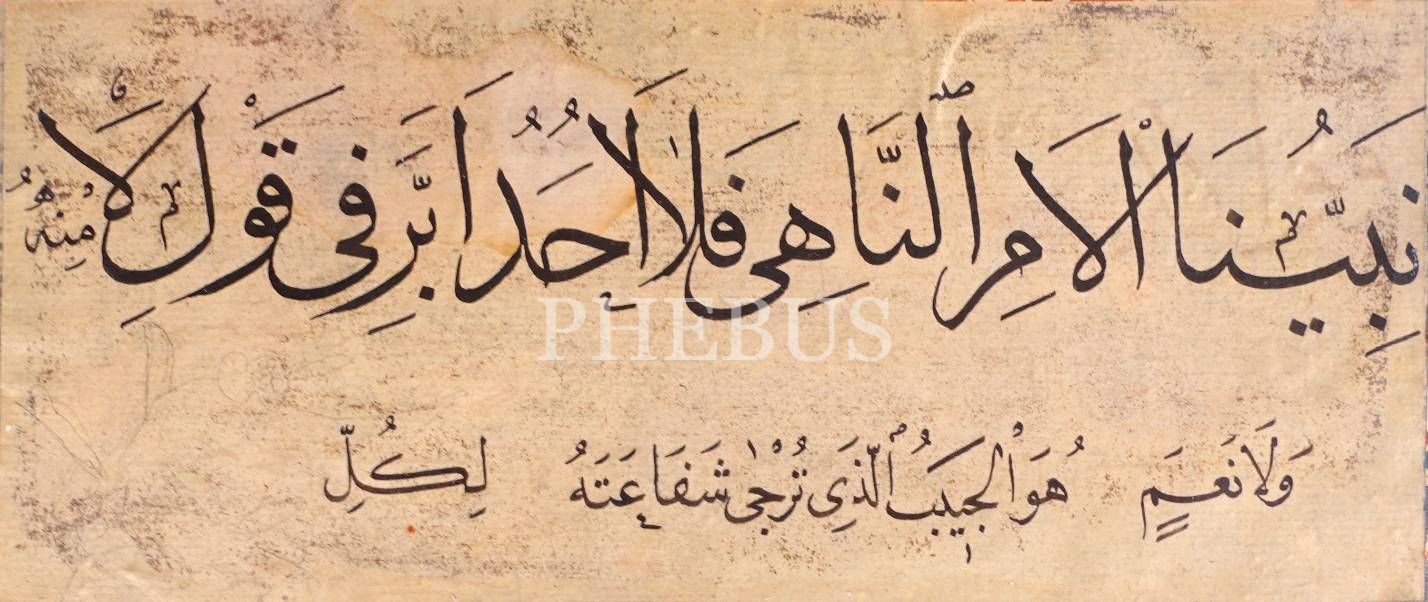 نَبِيُّنَا ٱلْاَمِرُ ٱلنَّاهِى فَلَا اَحَدُ اَبَرَّ فِى قَوْلِ لَا مِنْهُ
وَلَا نَعَمٍ هُوَ ٱلْحَبِيبُ ٱلَّذِى تُرْجٰى شَفَاعَتَهُ لِكُلِّ
PHEBUS